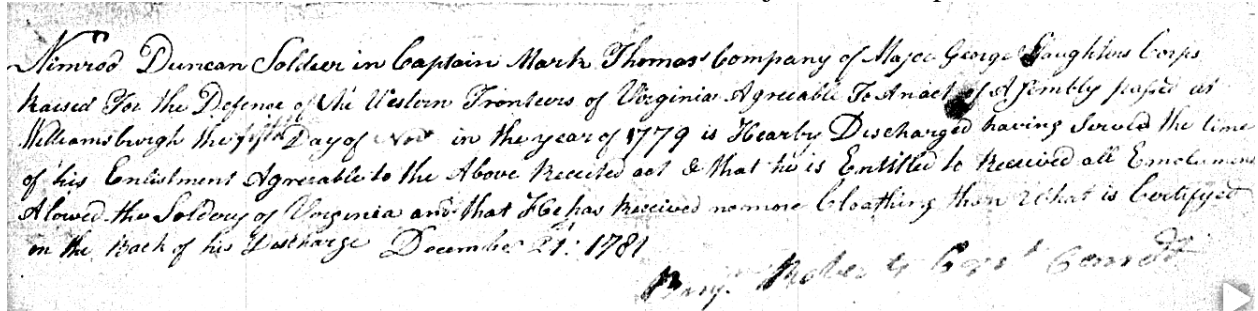 Nimrod Duncan Soldier in Captain Mark Thomas Company of Major George Slaughters Corps
Raised For the Defence of the Western Fronteers of Virginia Agreeable To An act of Assembly passed at
Williamsburgh the fifth Day of Nov in the year of 1779 is Hearby Discharged having Served the time
of his Enlistment Agreeable to the Above Recited act & that he is Entitled to Received all Emolument
Alowed the Soldery of Virginia and that He has Received no more Cloathing then what is Certifyed
on the Back of his Discharge December 21: 1781
Benjn Roberts Capt Comdt